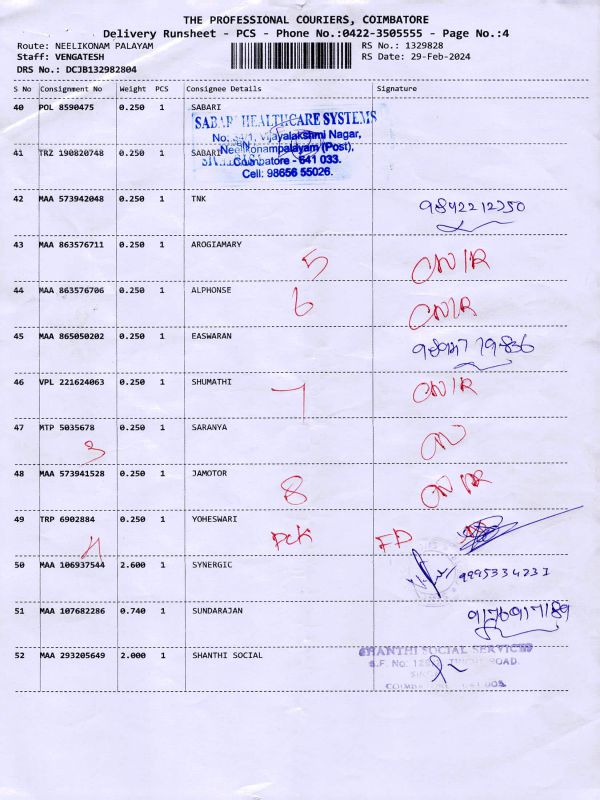 THE PROFESSIONAL COURIERS, COIMBATORE
Delivery Runsheet - PCS - Phone No.:0422-3505555 - Page No.:4
Route: NEELIKONAM PALAYAM RS No.: 1329828
Staff: VENGATESH RS Date: 29-Feb-2024
DRS No.: DCJB132982804
S No Consignment No Weight PCS Consignee Details Signature
40 POL 8590475 0.250 1 SABARI
SABARI HEALTHCARE SYSTEMS
Vijayalakshmi Nagar,
Neelikonampalayam (Post),
41 TRZ 190820748 0.250 1 SABARI
Coimbatore - 641 033.
Cell: 98656 55026.
42 MAA 573942048 0.250 1 TNK 9842212250
43 MAA 863576711 0.250 1 AROGIAMARY 5 CN/R
44 MAA 863576706 0.250 1 ALPHONSE 6 CN/R
45 MAA 865050202 0.250 1 EASWARAN
46 VPL 221624063 0.250 1 SHUMATHI 7 CN/R
47 MTP 5035678 0.250 1 SARANYA CN
3
48 MAA 573941528 0.250 1 JAMOTOR 8 CN/R
49 TRP 6902884 0.250 1 YOHESWARI
50 MAA 106937544 2.600 1 SYNERGIC 9995334231
51 MAA 107682286 0.740 1 SUNDARAJAN 9176917189
52 MAA 293205649 2.000 1 SHANTHI SOCIAL
SHANTHI SOCIAL SERVICES
S.F. No. ROAD.